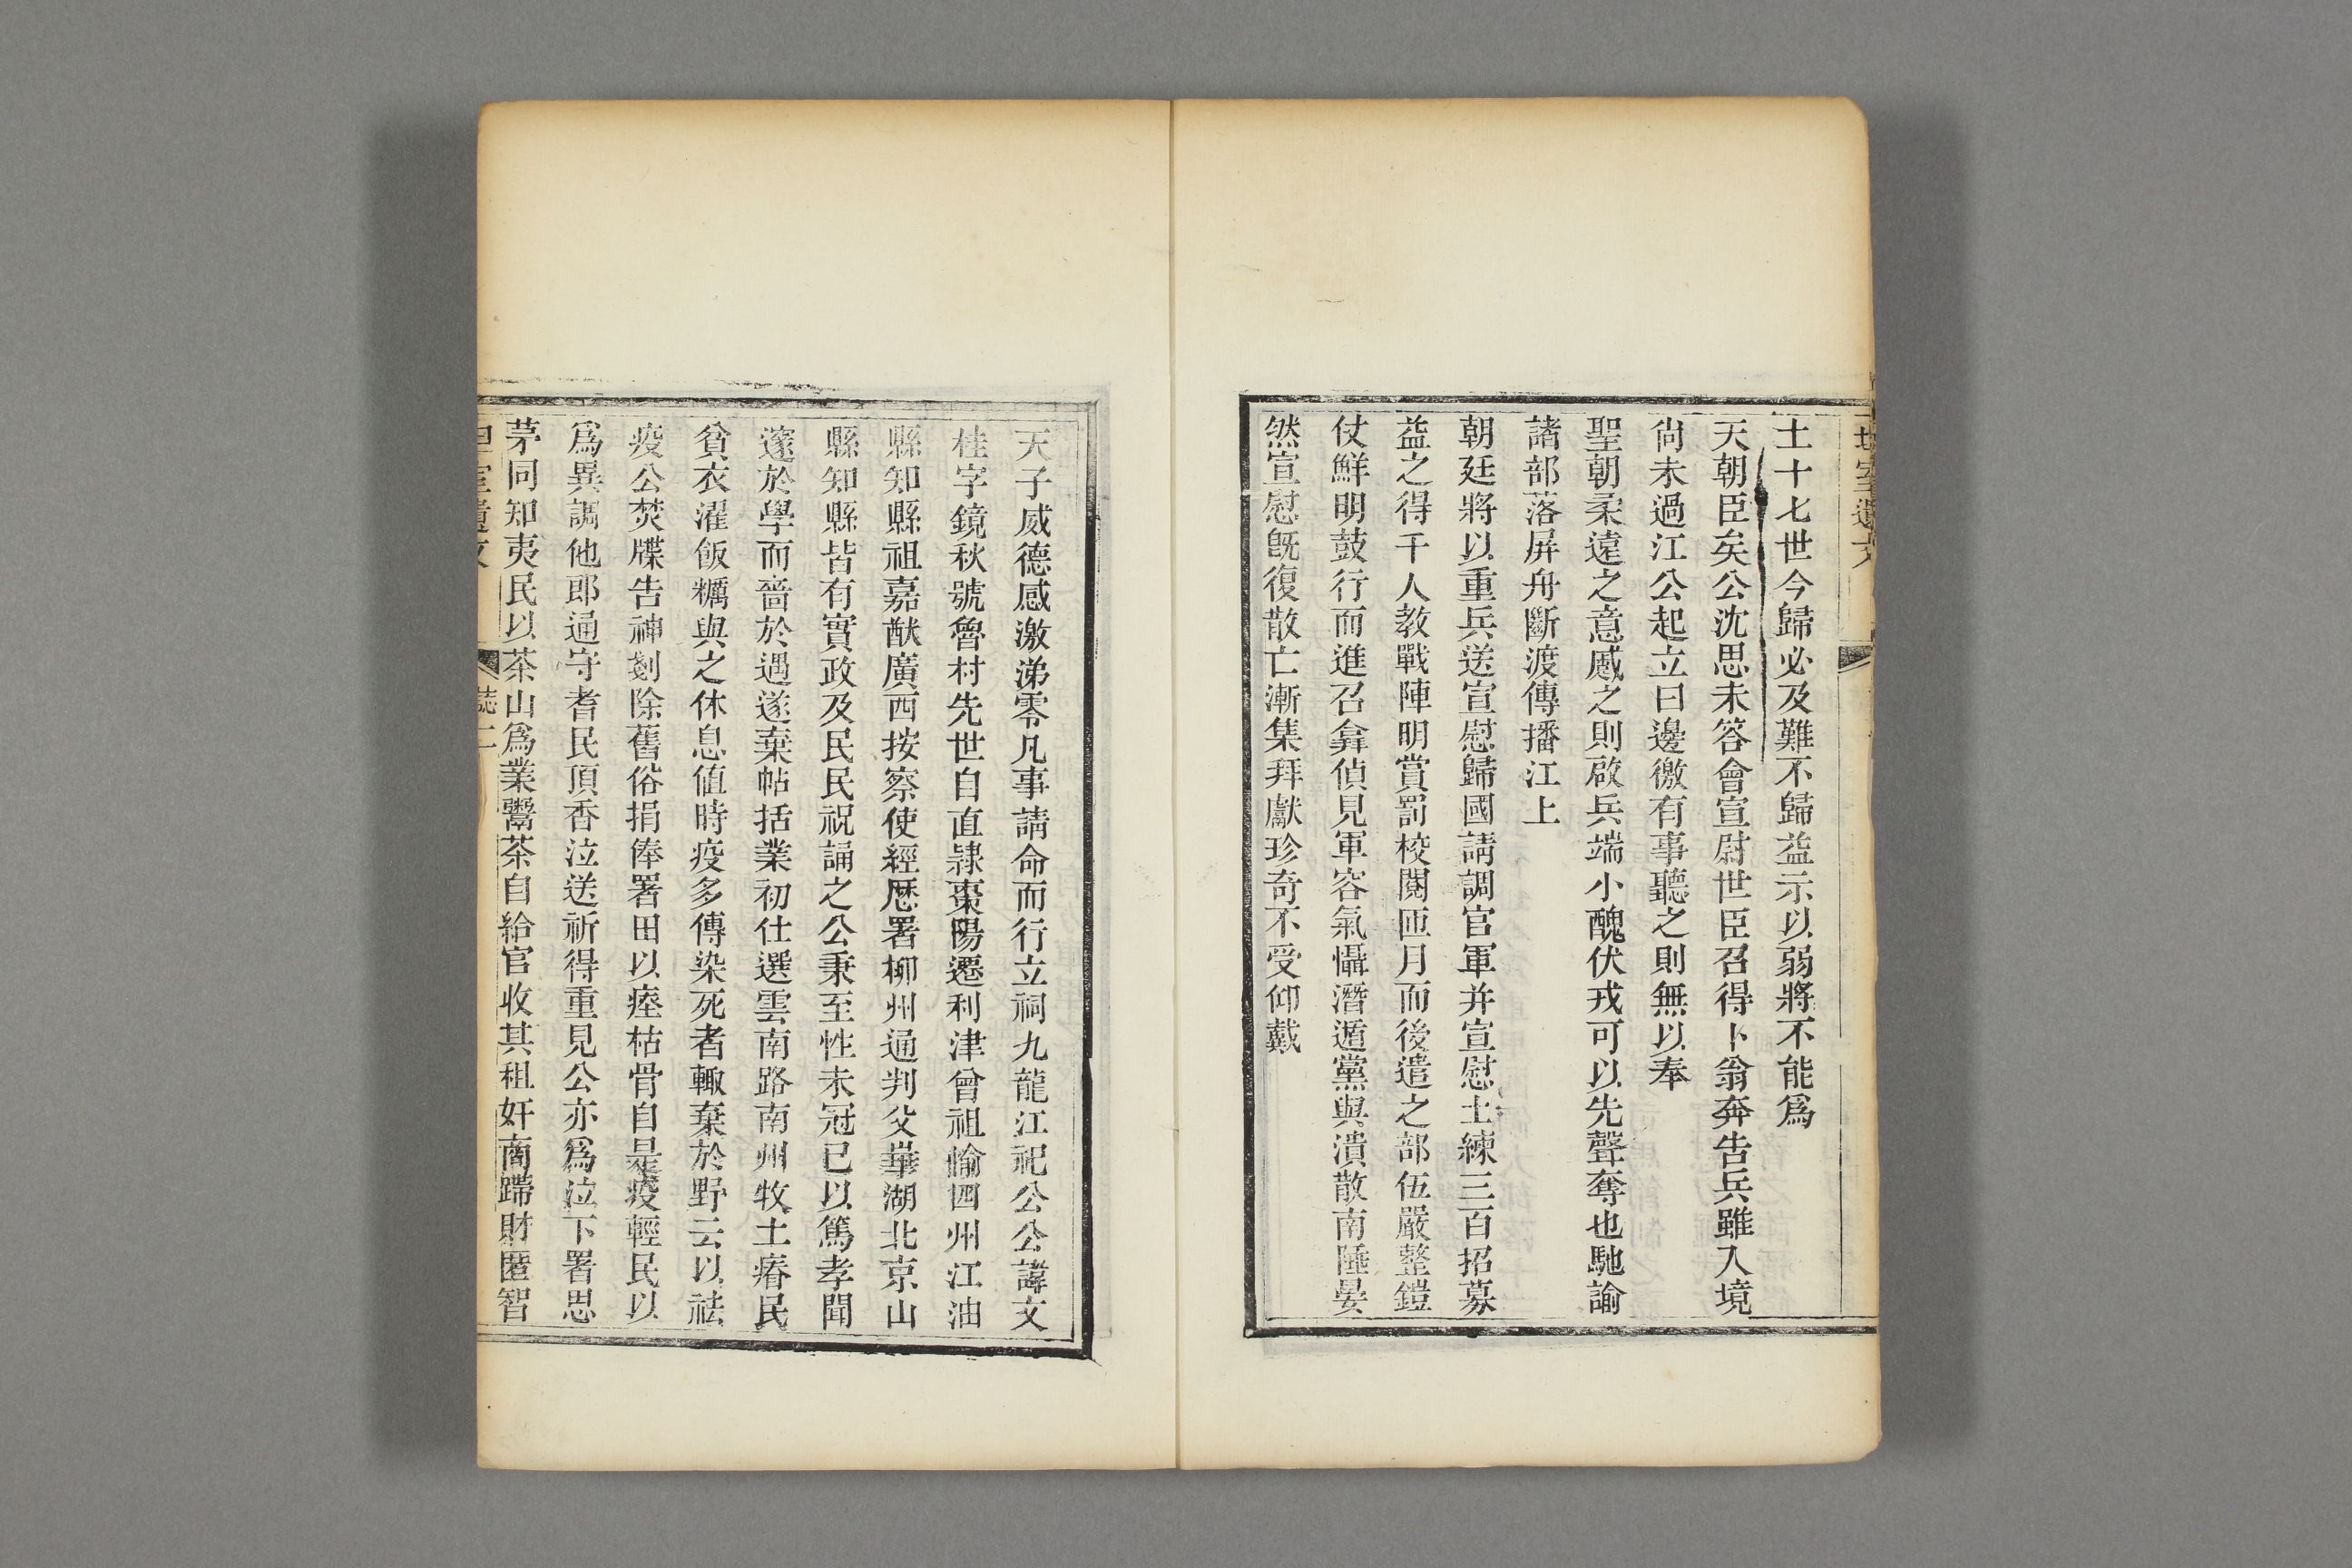 土十七世今歸必及難不歸益示以弱將不能爲
天朝臣矣公沈思未答會宣尉世臣召得卜翁奔告兵雖入境
尙未過江公起立曰邊徼有事聽之則無以奉
聖朝柔遠之意慼之則啟兵端小醜伏戎可以先聲奪也馳諭
諸部落屏舟斷渡傳播江上
朝廷將以重兵送宣慰歸國請調官軍并宣慰土練三百招募
益之得千人教戰陣明賞罰校閱匝月而後遣之部伍嚴整鎧
仗鮮明鼓行而進召弇偵見軍容氣懾潛遁黨與潰散南陲晏
然宣慰旣復散亡漸集拜獻珍奇不受仰戴
天子威德感激涕零凡事請命而行立祠九龍江祀公公諱文
桂字鏡秋號魯村先世自直隷棗陽遷利津曾祖愉四州江油
縣知縣祖嘉猷廣西按察使經歷署柳州通判父崋湖北京山
縣知縣皆有實政及民民祝誦之公秉至性未冠已以篤孝聞
邃於學而嗇於遇遂棄帖括業初仕選雲南路南州牧土瘠民
貧衣濯飯糲與之休息値時疫多傳染死者輒棄於野云以祛
疫公焚牒告神剗除舊俗捐俸署田以瘞枯骨自是疫輕民以
爲異調他郎通守耆民頂香泣送祈得重見公亦爲泣下署思
茅同知夷民以茶山爲業鬻茶自給官收其租奸商躋財匿智
室遺文
誌二